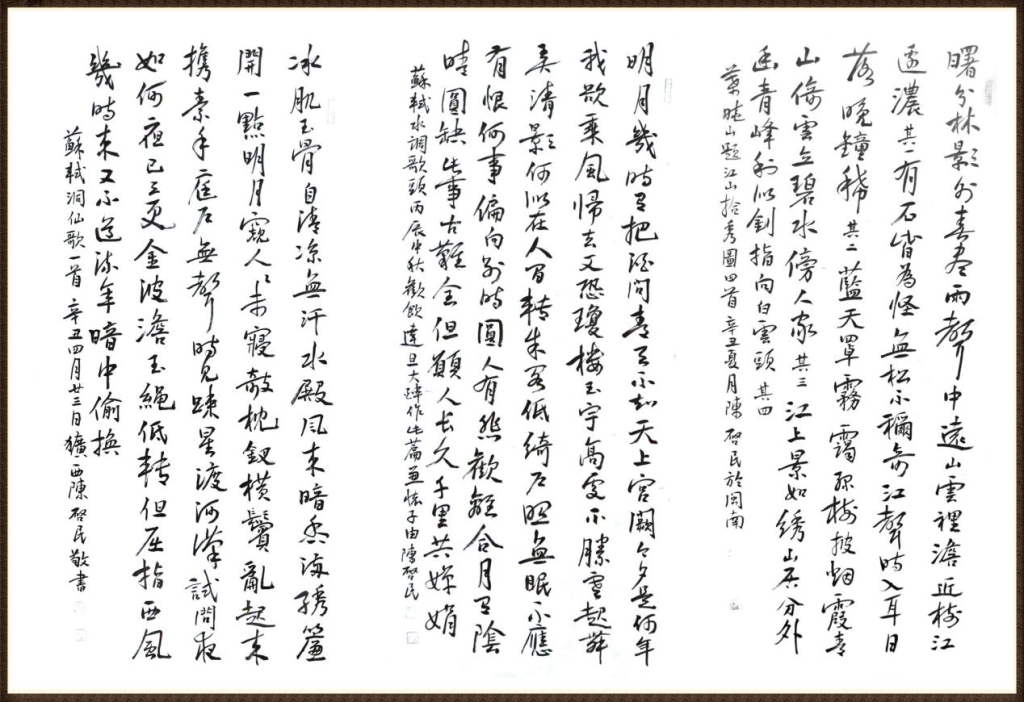 曙分林影外春盡雨聲中遠山雲裡澹近樹江
遙濃其一有石皆為怪無松不稱奇江聲時入耳日
落晚鐘稀其二藍天罩霧靄孤樹披烟霞青
山倚雲立碧水傍人家其三江上景如綉山居分外
幽青峰利似劍指向白雲頭其四
葉曉山題江山拾秀圖四首辛丑夏月陳啓民於閩南
明月幾時有把酒問青天不知天上宮闕今夕是何年
我欲乘風歸去又恐瓊樓玉宇高處不勝寒起舞
弄清影何似在人間轉朱閣低綺户照無眠不應
有恨何事偏向別時圓人有悲歡離合月有陰
晴圓缺此事古難全但願人長久千里共嬋娟
蘇軾水調歌頭丙辰中秋歡飲達旦大醉作此篇兼懷子由陳啓民
冰肌玉骨自清涼無汗水殿風來暗香滿綉簾
開一點明月窺人々未寢敧枕釵橫鬢亂起來
攜素手庭户無聲時見疎星渡河漢試問夜
如何夜已三更金波澹玉繩低轉但屈指西風
幾時來又不道流年暗中偷換
蘇軾洞仙歌一首辛丑四月廿三日獷西陳啓民敬書